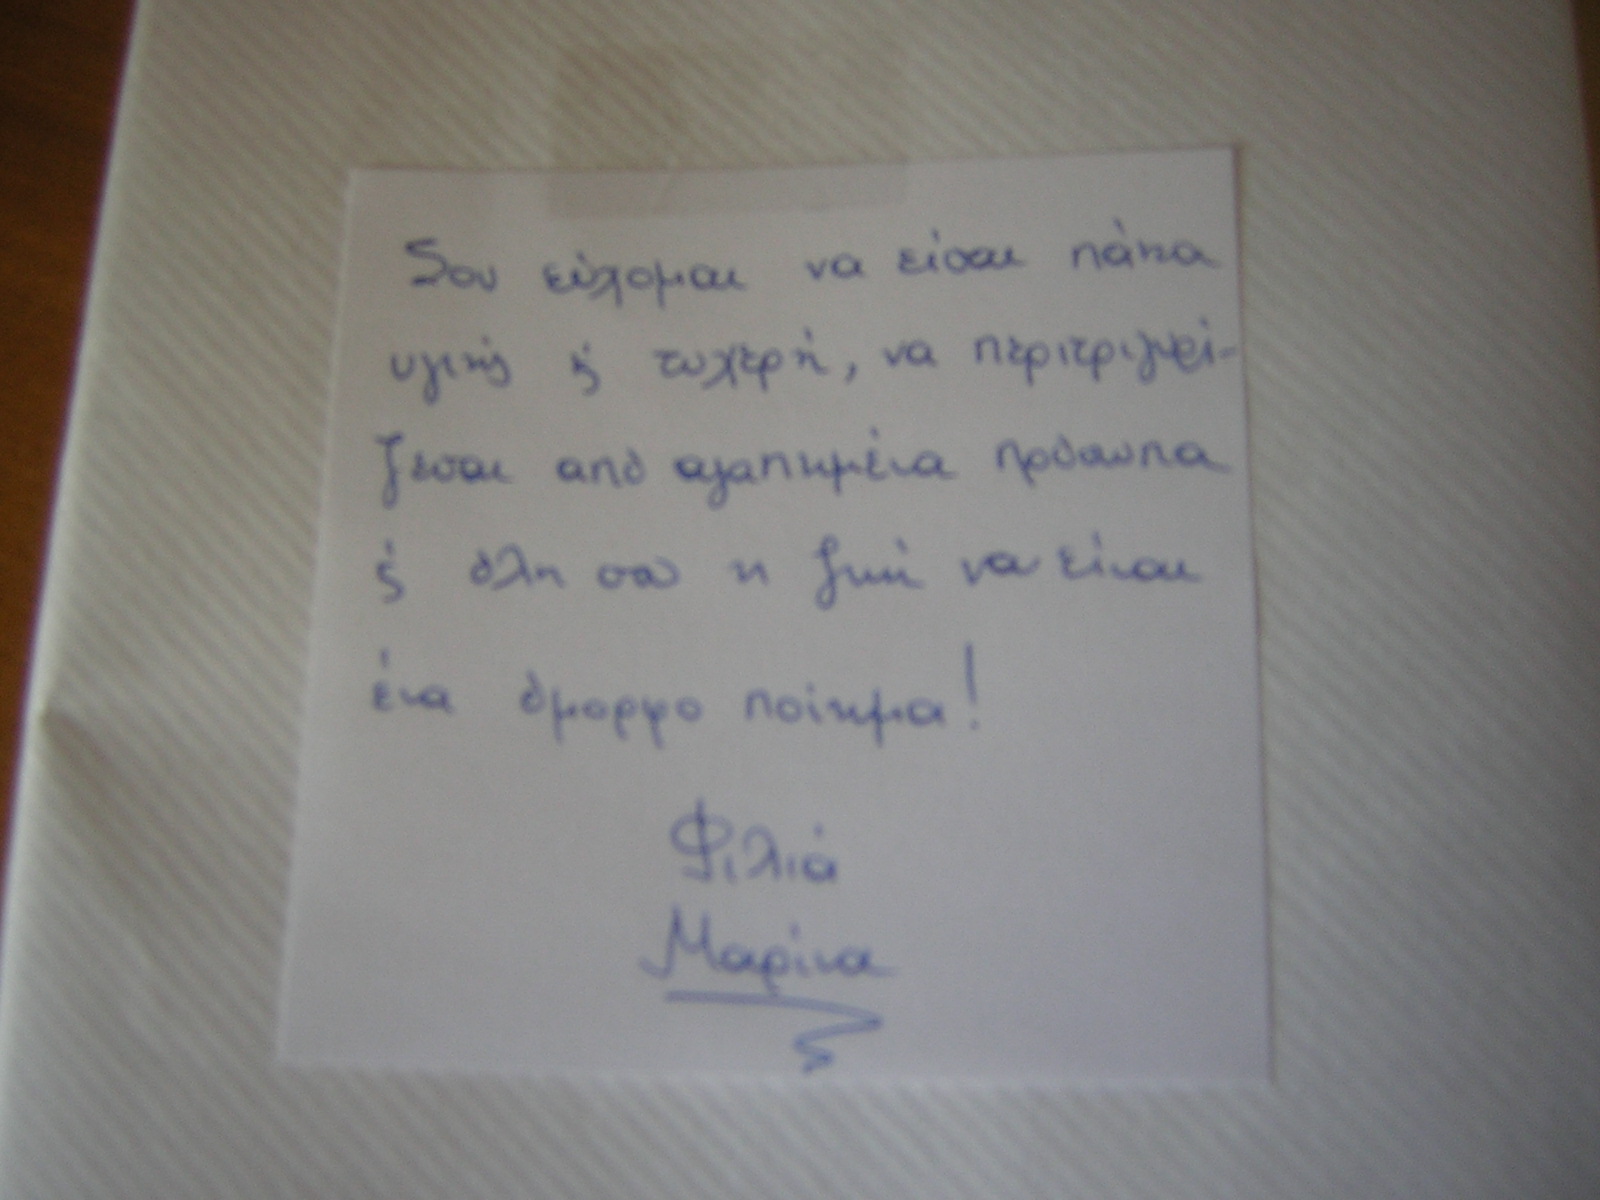 Σου εύχομαι να είσαι πάντα
υγιής ϗ τυχερή, να περιτριγυρί-
ζεσαι από αγαπημένα πρόσωπα
ϗ όλη σου η ζωή να είναι
ένα όμορφο ποίημα!
Φιλιά
Μαρίνα